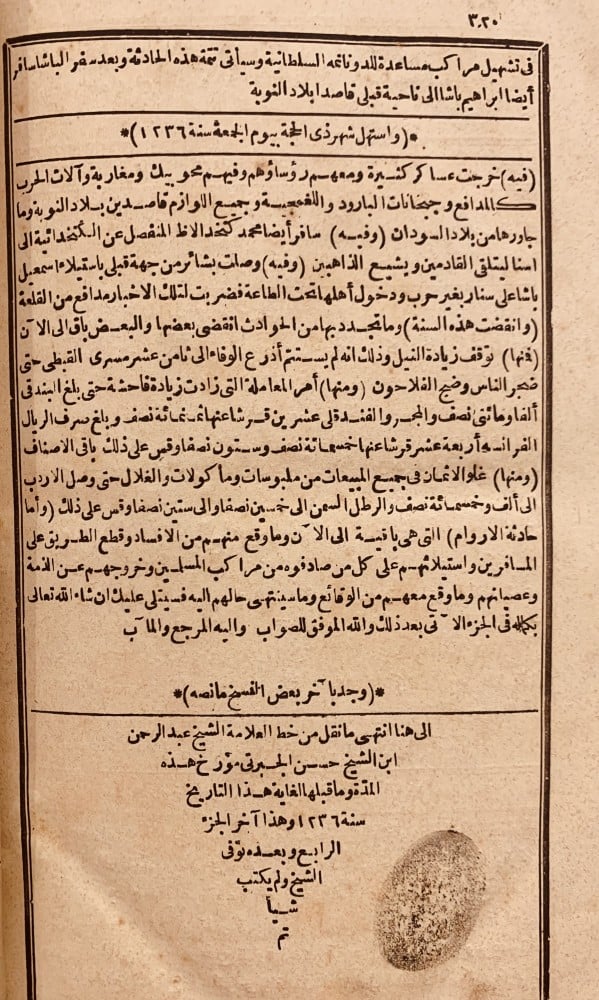 ٣٢٠
فى تشهيل مراكب مساعدة للدونانمه السلطانية وسيأتى تتمة هذه الحادثة وبعد سفر الباشا سافر
أيضا ابراهيم باشا الى ناحية قبلى قاصدا بلاد النوبة
*(واستهل شهر ذى الحجة بيوم الجمعة سنة ١٢٣٦)*
(فيه) خرجت عساكر كثيرة ومعهم رؤساؤهم وفيهم محو بيك ومغاربة وآلات الحرب
كالمدافع وجبخانات البارود واللغمجية وجميع اللوازم قاصدين بلاد النوبة وما
جاورها من بلاد السودان (وفيه) سافر أيضا محمد كتخدا لاظ المنفصل عن الكتخدائية الى
اسنا ليتلقى القادمين ويشيع الذاهبين (وفيه) وصلت بشائر من جهة قبلى باستيلاء اسمعيل
باشا على سنار بغير حرب ودخول أهلها تحت الطاعة فضربت لتلك الاخبار مدافع من القلعة
(وانقضت هذه السنة) وما تجدد بها من الحوادث انقضى بعضها والبعض باق الى الآن
(فمنها) توقف زيادة النيل وذلك انه لم يستتم أذرع الوفاء الى ثامن عشر مسرى القبطى حتى
ضجر الناس وضج الفلاحون (ومنها) أمر المعاملة التى زادت زيادة فاحشة حتى بلغ البندقى
ألفا ومائتى نصف والمجر والفندقلى عشرين قرشا عنها ثمانمائة نصف وبلغ صرف الريال
الفرانسه أربعة عشر قرشا عنها خمسمائة نصف وستون نصفا وقس على ذلك باقى الاصناف
(ومنها) غلو الاثمان فى جميع المبيعات من ملبوسات ومأكولات والغلال حتى وصل الاردب
الى ألف وخمسمائة نصف والرطل السمن الى خمسين نصفا والى ستين نصفا وقس على ذلك (وأما
حادثة الاروام) التى هى باقية الى الآن وما وقع منهم من الافساد وقطع الطريق على
المسافرين واستيلائهم على كل من صادفوه من مراكب المسلمين وخروجهم عن الذمة
وعصيانهم وما وقع معهم من الوقائع وما سينتهى حالهم اليه فسيتلى عليك ان شاء الله تعالى
بكماله فى الجزء الآتى بعد ذلك والله الموفق للصواب واليه المرجع والمآب
*(وجد بآخر بعض النسخ مانصه)*
الى هنا انتهى ما نقل من خط العلامة الشيخ عبد الرحمن
ابن الشيخ حسن الجبرتى مؤرخ هذه
المدة وما قبلها لغاية هذا التاريخ
سنة ١٢٣٦ وهذا آخر الجزء
الرابع وبعده توفى
الشيخ ولم يكتب
شيأ
تم